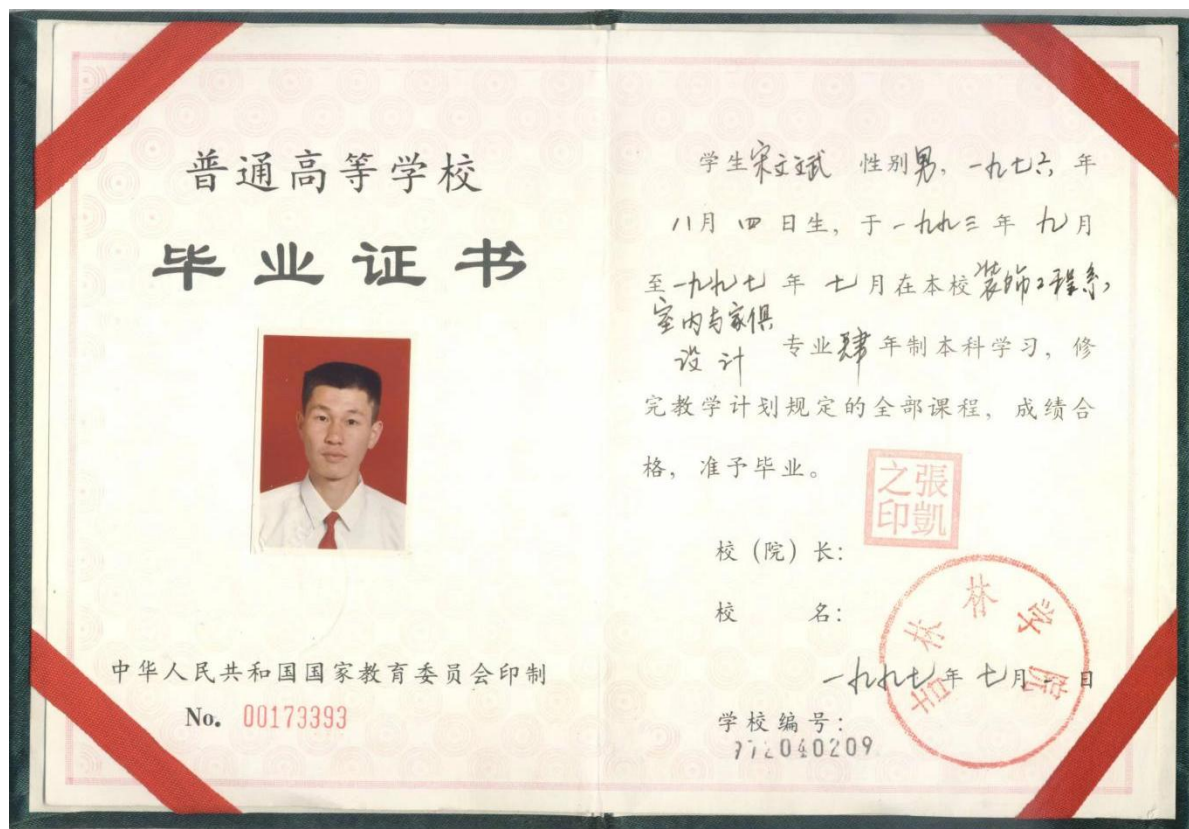 普通高等学校
毕业证书
中华人民共和国国家教育委员会印制
No. 00173393
学生宋文斌 性别男，一九七六年
八月四日生，于一九九三年九月
至一九九七年七月在本校装饰工程系
室内与家俱
设计 专业肆年制本科学习，修
完教学计划规定的全部课程，成绩合
格，准予毕业。
張凱之印
校（院）长：
校 名：
吉林林学院
一九九七年七月一日
学校编号：